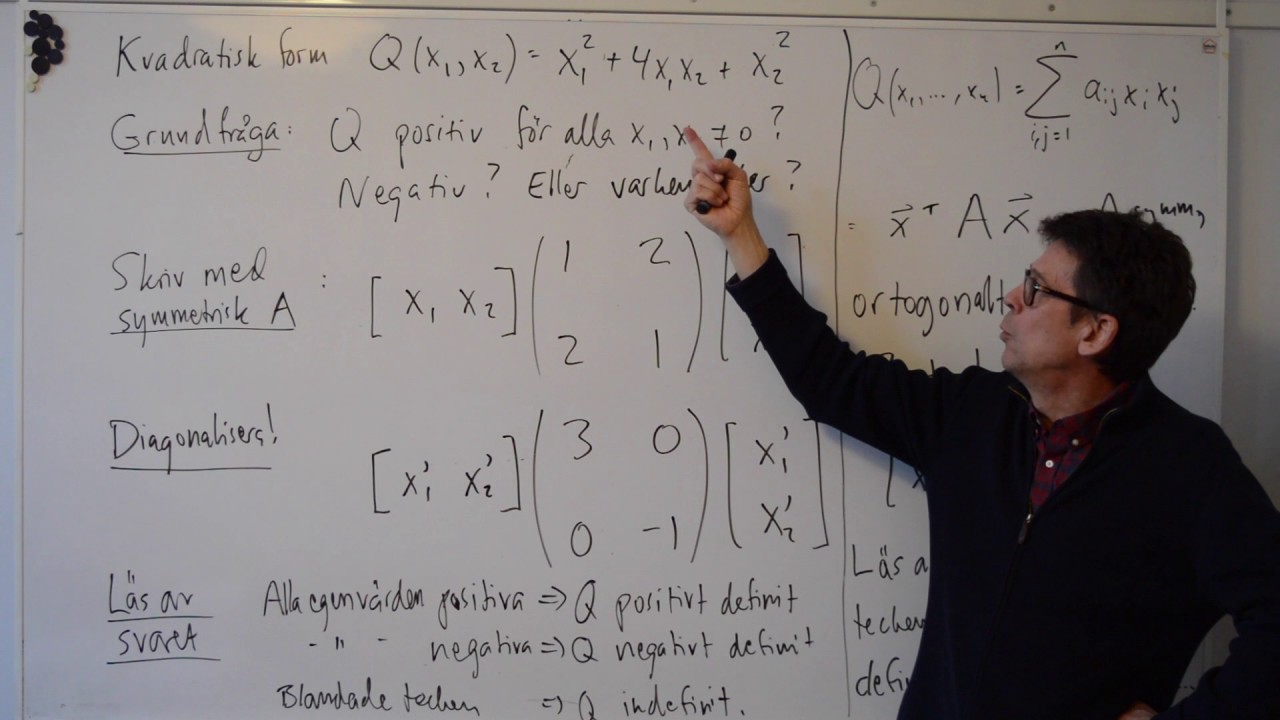 Kvadratisk form Q(x₁,x₂) = x₁² + 4x₁x₂ + x₂²
Grundfråga: Q positiv för alla x₁, x ≠ 0 ?
Negativ? Eller varken ?
Skriv med
symmetrisk A :
[x₁ x₂] (1 2
2 1) [
Diagonalisera!
[x₁' x₂'] (3 0
0 -1) [x₁'
x₂']
Läs av
svaret
Alla egenvärden positiva => Q positivt definit
- " - negativa => Q negativt definit
Blandade tecken => Q indefinit.
Q(x₁,...,xₙ) = Σ aᵢⱼ xᵢ xⱼ
n
i,j=1
= x⃗ᵀ A x⃗ symm,
ortogonalt
[x
Läs a
tecken
defin